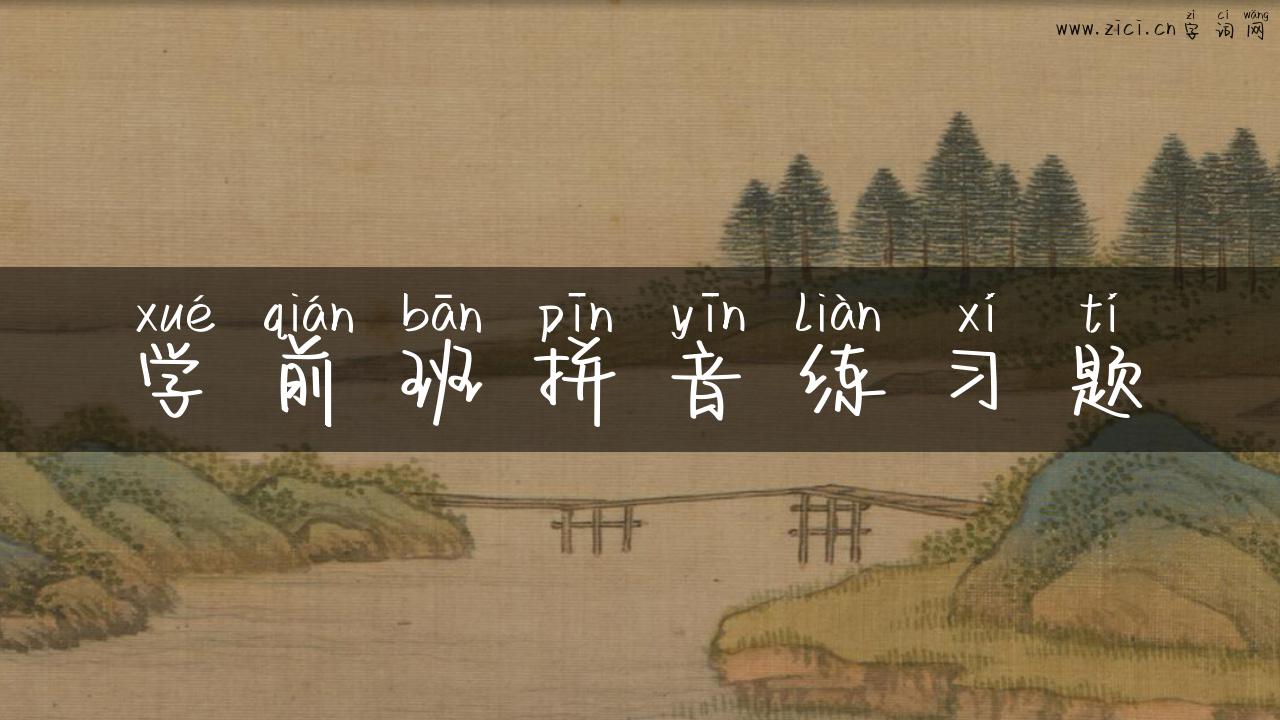 zì cí wǎng
www.zici.cn 字词网
xué qián bān pīn yīn liàn xí tí
学前班拼音练习题